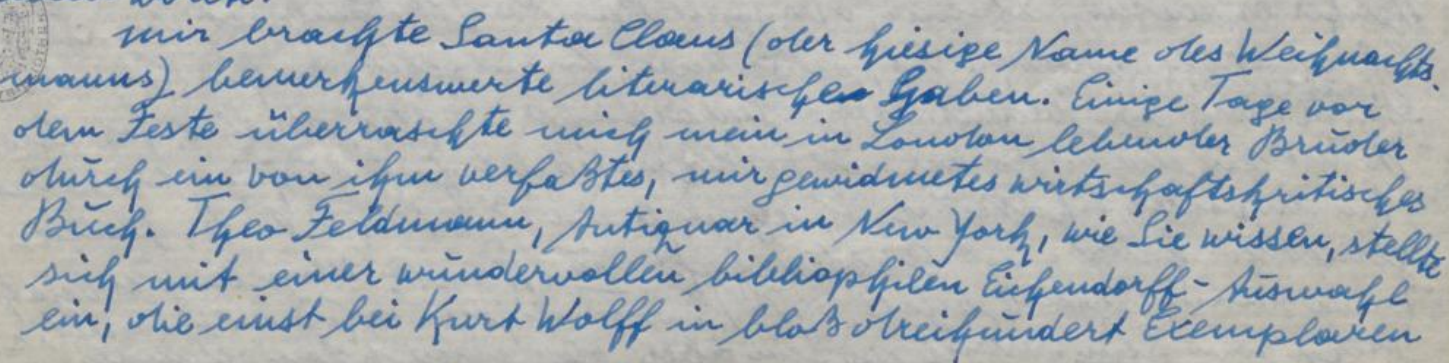 Mir brachte Santa Claus (der hiesige Name des Weihnachts-
manns) bemerkenswerte literarische Gaben. Einige Tage vor
dem Feste überraschte mich mein in London lebender Bruder
durch ein von ihm verfaßtes, mir gewidmetes wirtschaftskritisches
Buch. Theo Feldmann, Antiquar in New York, wie Sie wissen, stellte
sich mit einer wundervollen bibliophilen Eichendorff-Auswahl
ein, die einst bei Kurt Wolff in bloß dreihundert Exemplaren